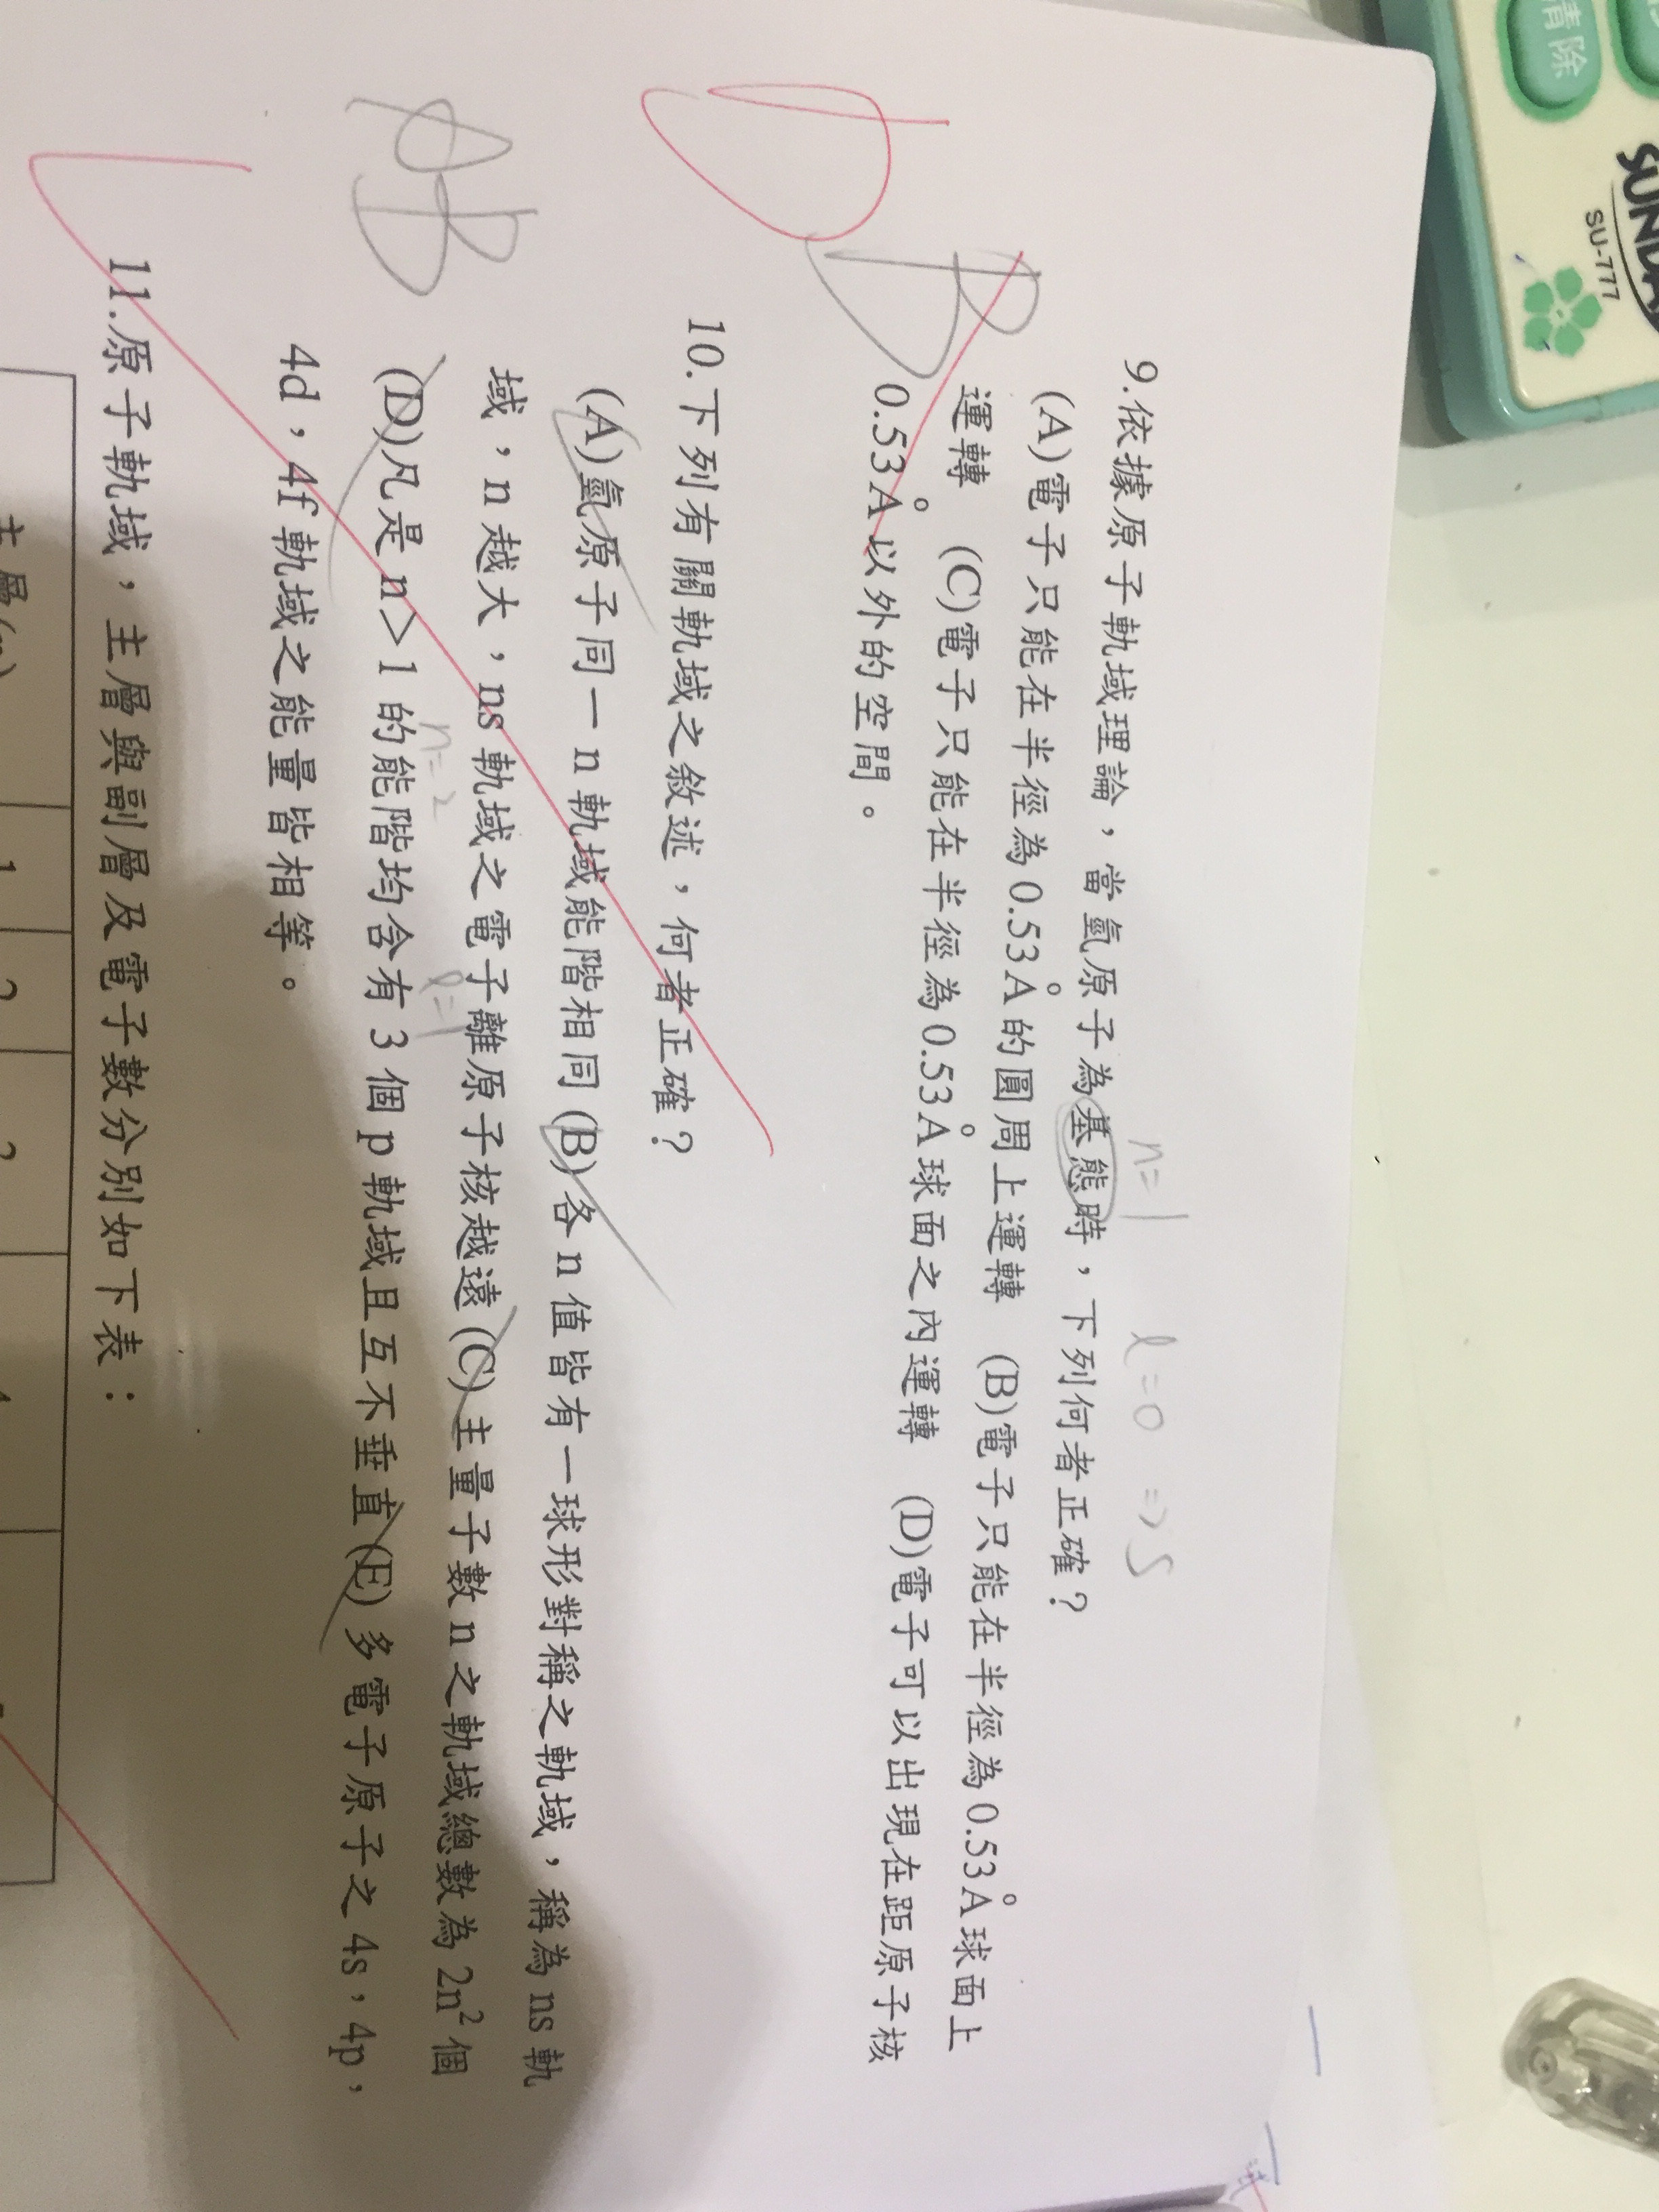 清除
SUNDA
SU-777
n=1 l=0 ⇒ s
9.依據原子軌域理論，當氫原子為基態時，下列何者正確？
(A)電子只能在半徑為0.53Å的圓周上運轉 (B)電子只能在半徑為0.53Å球面上
運轉 (C)電子只能在半徑為0.53Å球面之內運轉 (D)電子可以出現在距原子核
0.53Å以外的空間。
B
D
10.下列有關軌域之敘述，何者正確？
(A)氫原子同一n軌域能階相同(B)各n值皆有一球形對稱之軌域，稱為ns軌
域，n越大，ns軌域之電子離原子核越遠(C)主量子數n之軌域總數為2n²個
n=2 l=1
(D)凡是n>1的能階均含有3個p軌域且互不垂直(E)多電子原子之4s，4p，
4d，4f軌域之能量皆相等。
AB
11.原子軌域，主層與副層及電子數分別如下表：
主層(n) 1 2 3 4